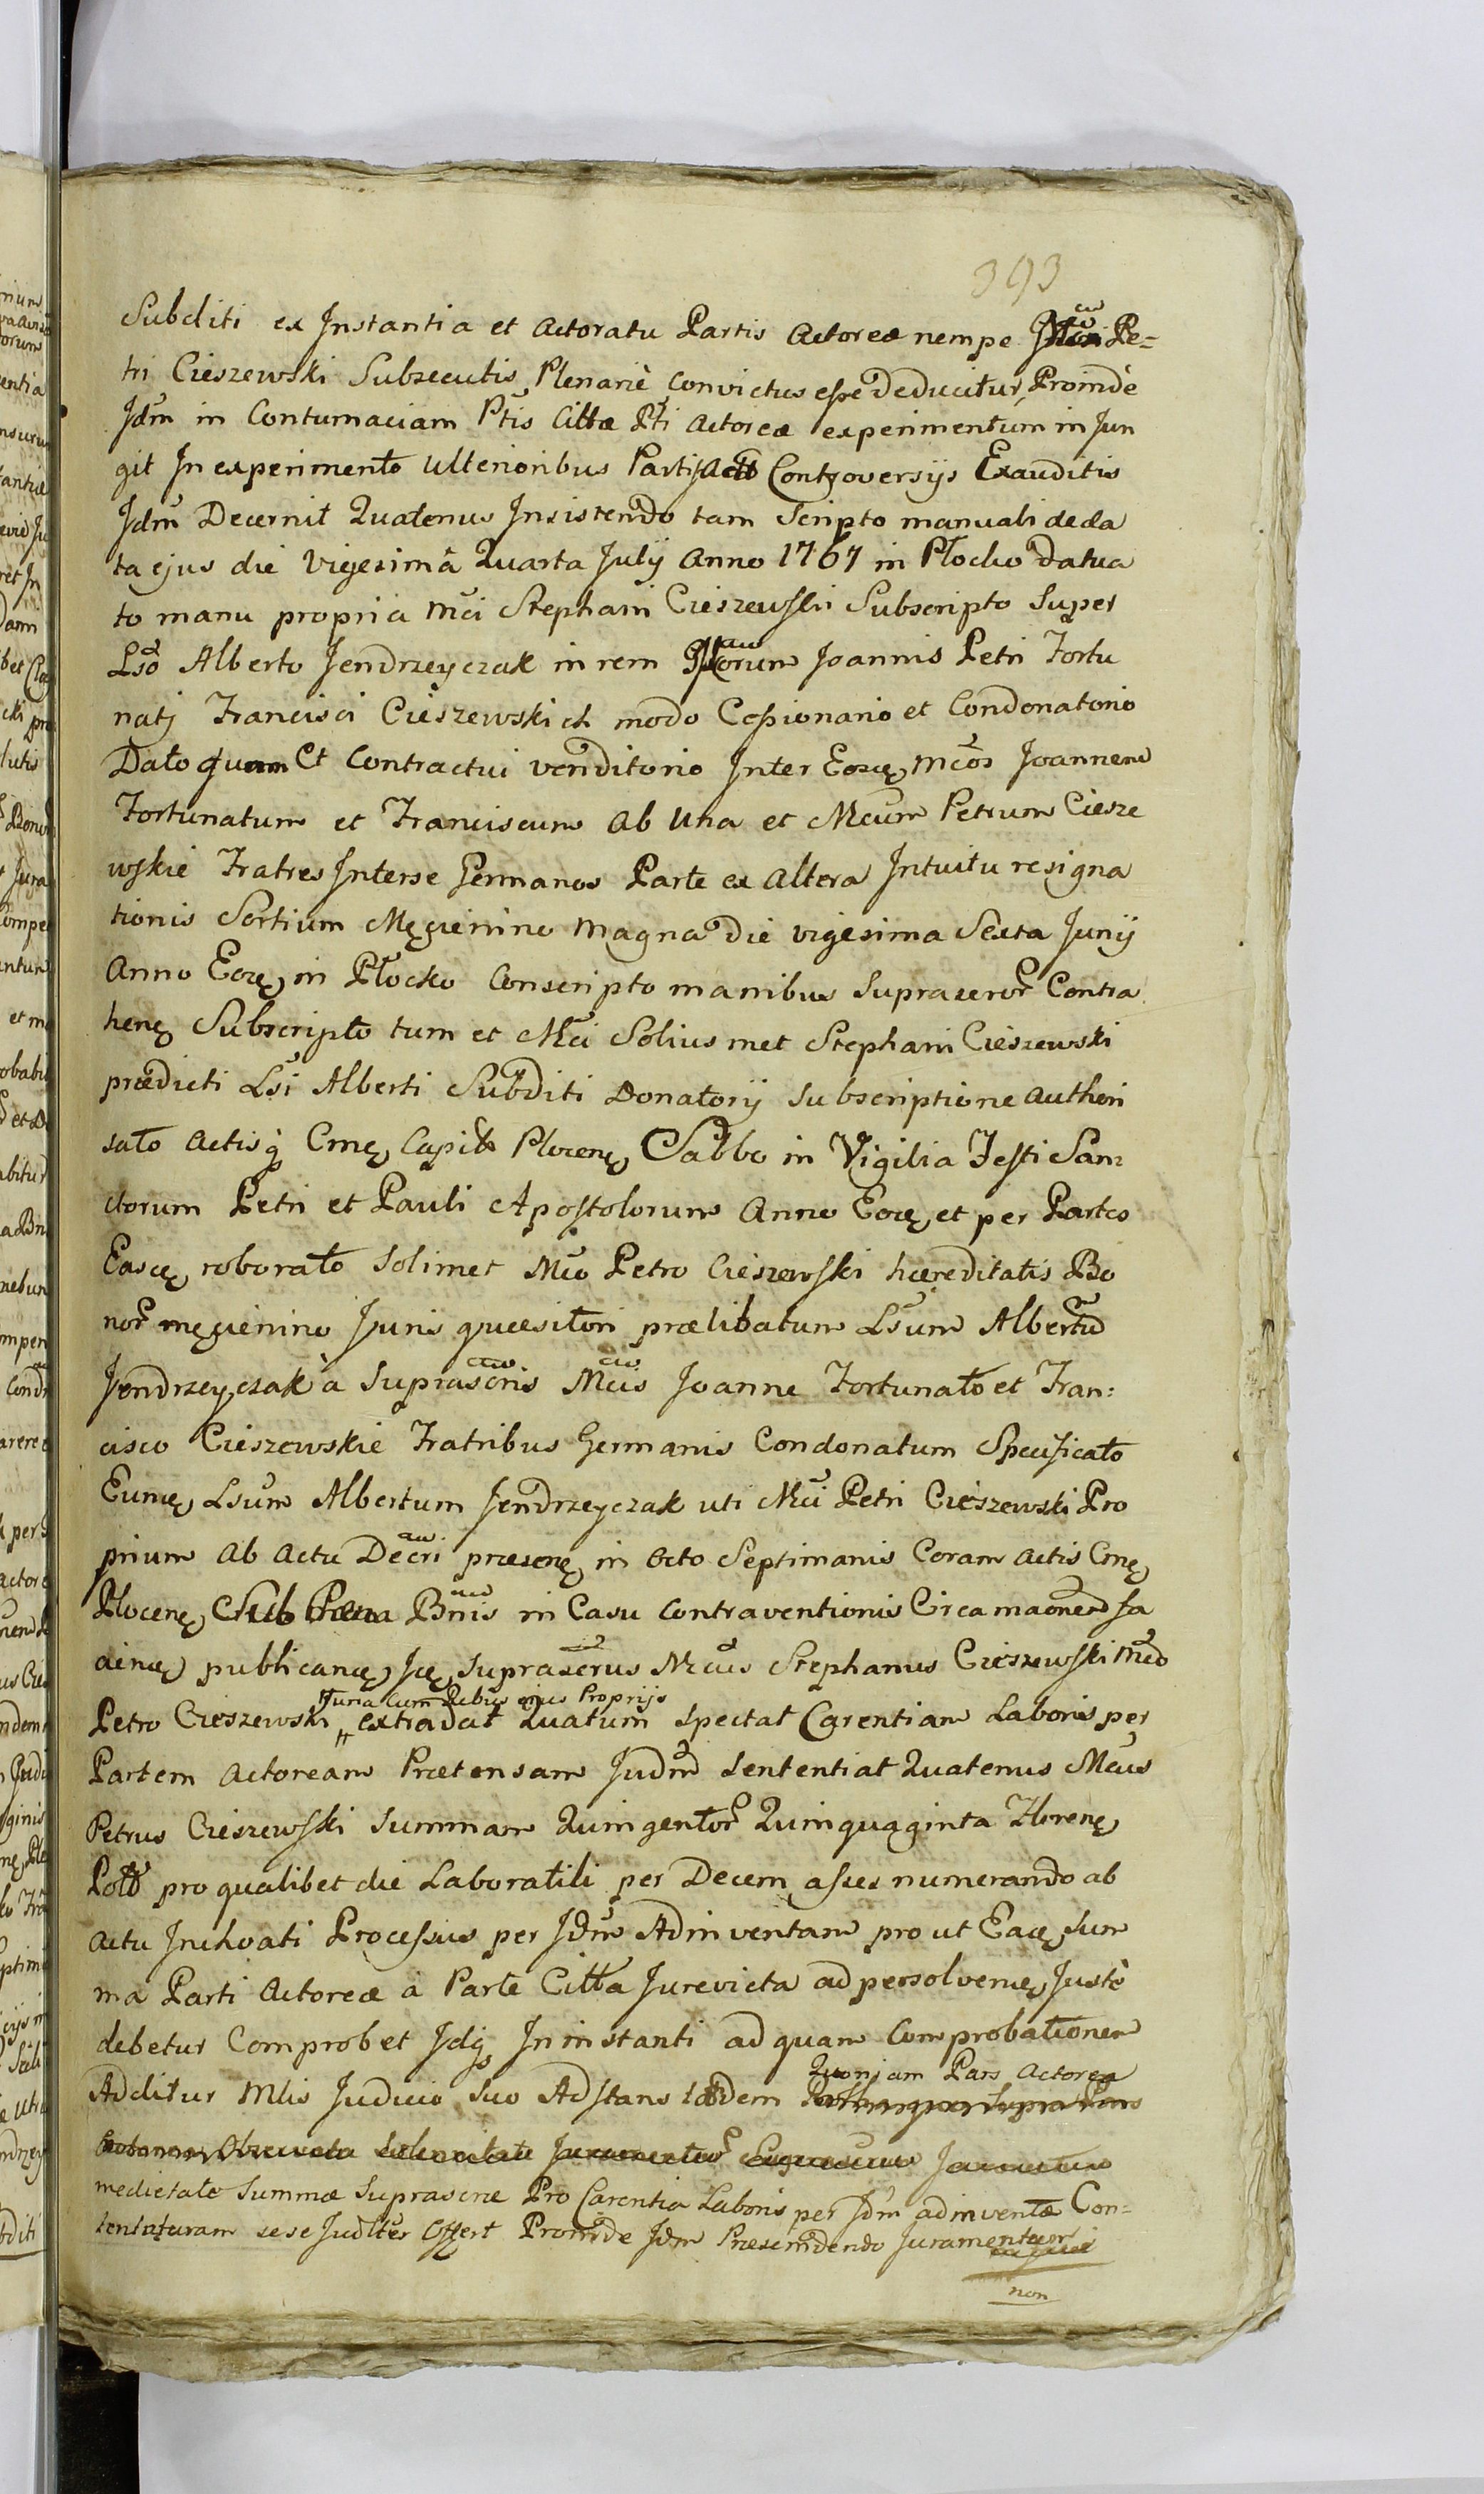 393
Subditi ex Instantia et Actoratu Partis Actoreæ nempe Pe=
tri Cieszewski Subsecutis Plenariè Convictus esse Deducitur, Proindè
Jdm in Contumaciam Ptis Cittæ Pti Actoreæ experimentum in Jun
git In experimento Ulterioribus Controversijs Exauditis
Jdm Decernit Quatenus Insistendo tam Scripto manuali de da
ta ejus die Vigesimâ Quarta July Anno 1767 in Płocko Datua
to manu propria Mci Stephani Cieszewski Subscripto Super
Lso Alberto Jendrzeyczak in rem Joannis Petri Fortu
natj Francisci Cieszewskich modo Cessionario et Condonatorio
Dato quam Et Contractui venditorio Inter Eosq Mcos Joannem
Fortunatum et Franciscum Ab Una et Mcum Petrum Ciesze
wskie Fratres Interse Germanos Parte ex Altera Intuitu resigna
tionis Sortium Męcienino Magna Die vigesima Sexta Junij
Anno Eoq in Płocko Conscripto manibus Suprascror Contra
henq Subscripto tum et Mci Solius met Stephani Cieszewski
prædicti Lsi Alberti Subditi Donatorij Subscriptione Authori
sato Actisq Cmq Capit Plocenq Sabbo in Vigilia Festi San=
ctorum Petri et Pauli Apostolorum Anno Eoq et per Partes
Easq roborato Solimet Mco Petro Cieszewski hæreditatis Bo
nor męcienino Juris quæsitori prælibatum Lsum Albertu
Jendrzeyczak à Suprascris Mcis Joanne Fortunato et Fran=
cisco Cieszewskie Fratribus Germanis Condonatum Specificato
Eumq Lsum Albertum Jendrzeyczak uti Mci Petri Cieszewski Pro
prium Ab Actu Decri præsenq in Octo Septimanis Coram Actis Cmq
Plocenq Sub Pæna Bnis in Casu Contraventionis Circa
publicanq Suprascrus Mcus Stephanus Cieszewski Mco
una Cum Rebus ejus Proprijs
Petro Cieszewski extradat Quatum spectat Carentiam Laboris per
Partem Actoream Prætensam Judm Sententiat Quatenus Mcus
Petrus Cieszewski Summam Quingentor Quinquaginta Florenq
Poll pro qualibet die Laboratili per Decem asses numerando ab
actu Inchoati Processus per Jdm Adinventam pro ut Eaq Sum
ma Parti Actoreæ à Parte Citta Jurevicta ad persolvenq Justè
debetur Comprobet Jdq In instanti ad quam Comprobationem
Quoniam Pars Actorea
Additur Mlis Judicio Suo Adstans
medietate Summæ Suprascræ Pro Carentia Laboris per Jdm adinventæ Con=
tentaturam sese Judlter Offert Proinde Jdm Præscindendo Juramentum
non